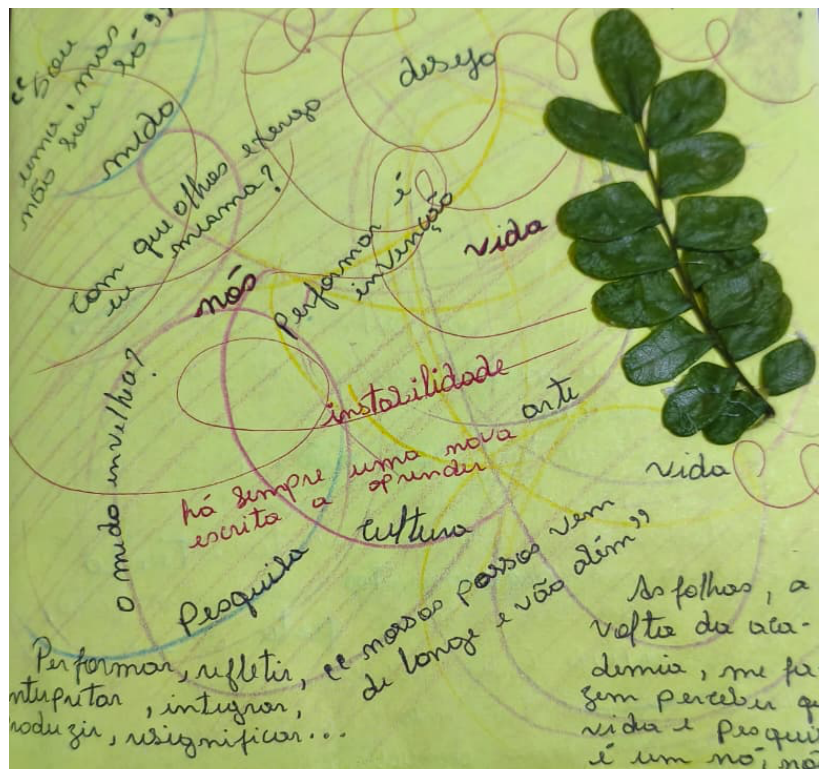 “Sou
uma, mas
não sou só”
medo
desejo
Com que olhos exergo
eu mesma?
nós
Performar é
invenção
vida
o medo envelhea?
instabilidade
arte
há sempre uma nova
escrita a aprender
vida
Pesquisa
Cultura
“nossos passos vem
de longe e vão além”
Performar, refletir,
nterpretar, integrar,
roduzir, resignificar...
As folhas, a
volta da aca-
demia, me fa-
zem perceber qu
vida e pesquis
é um nó, nó